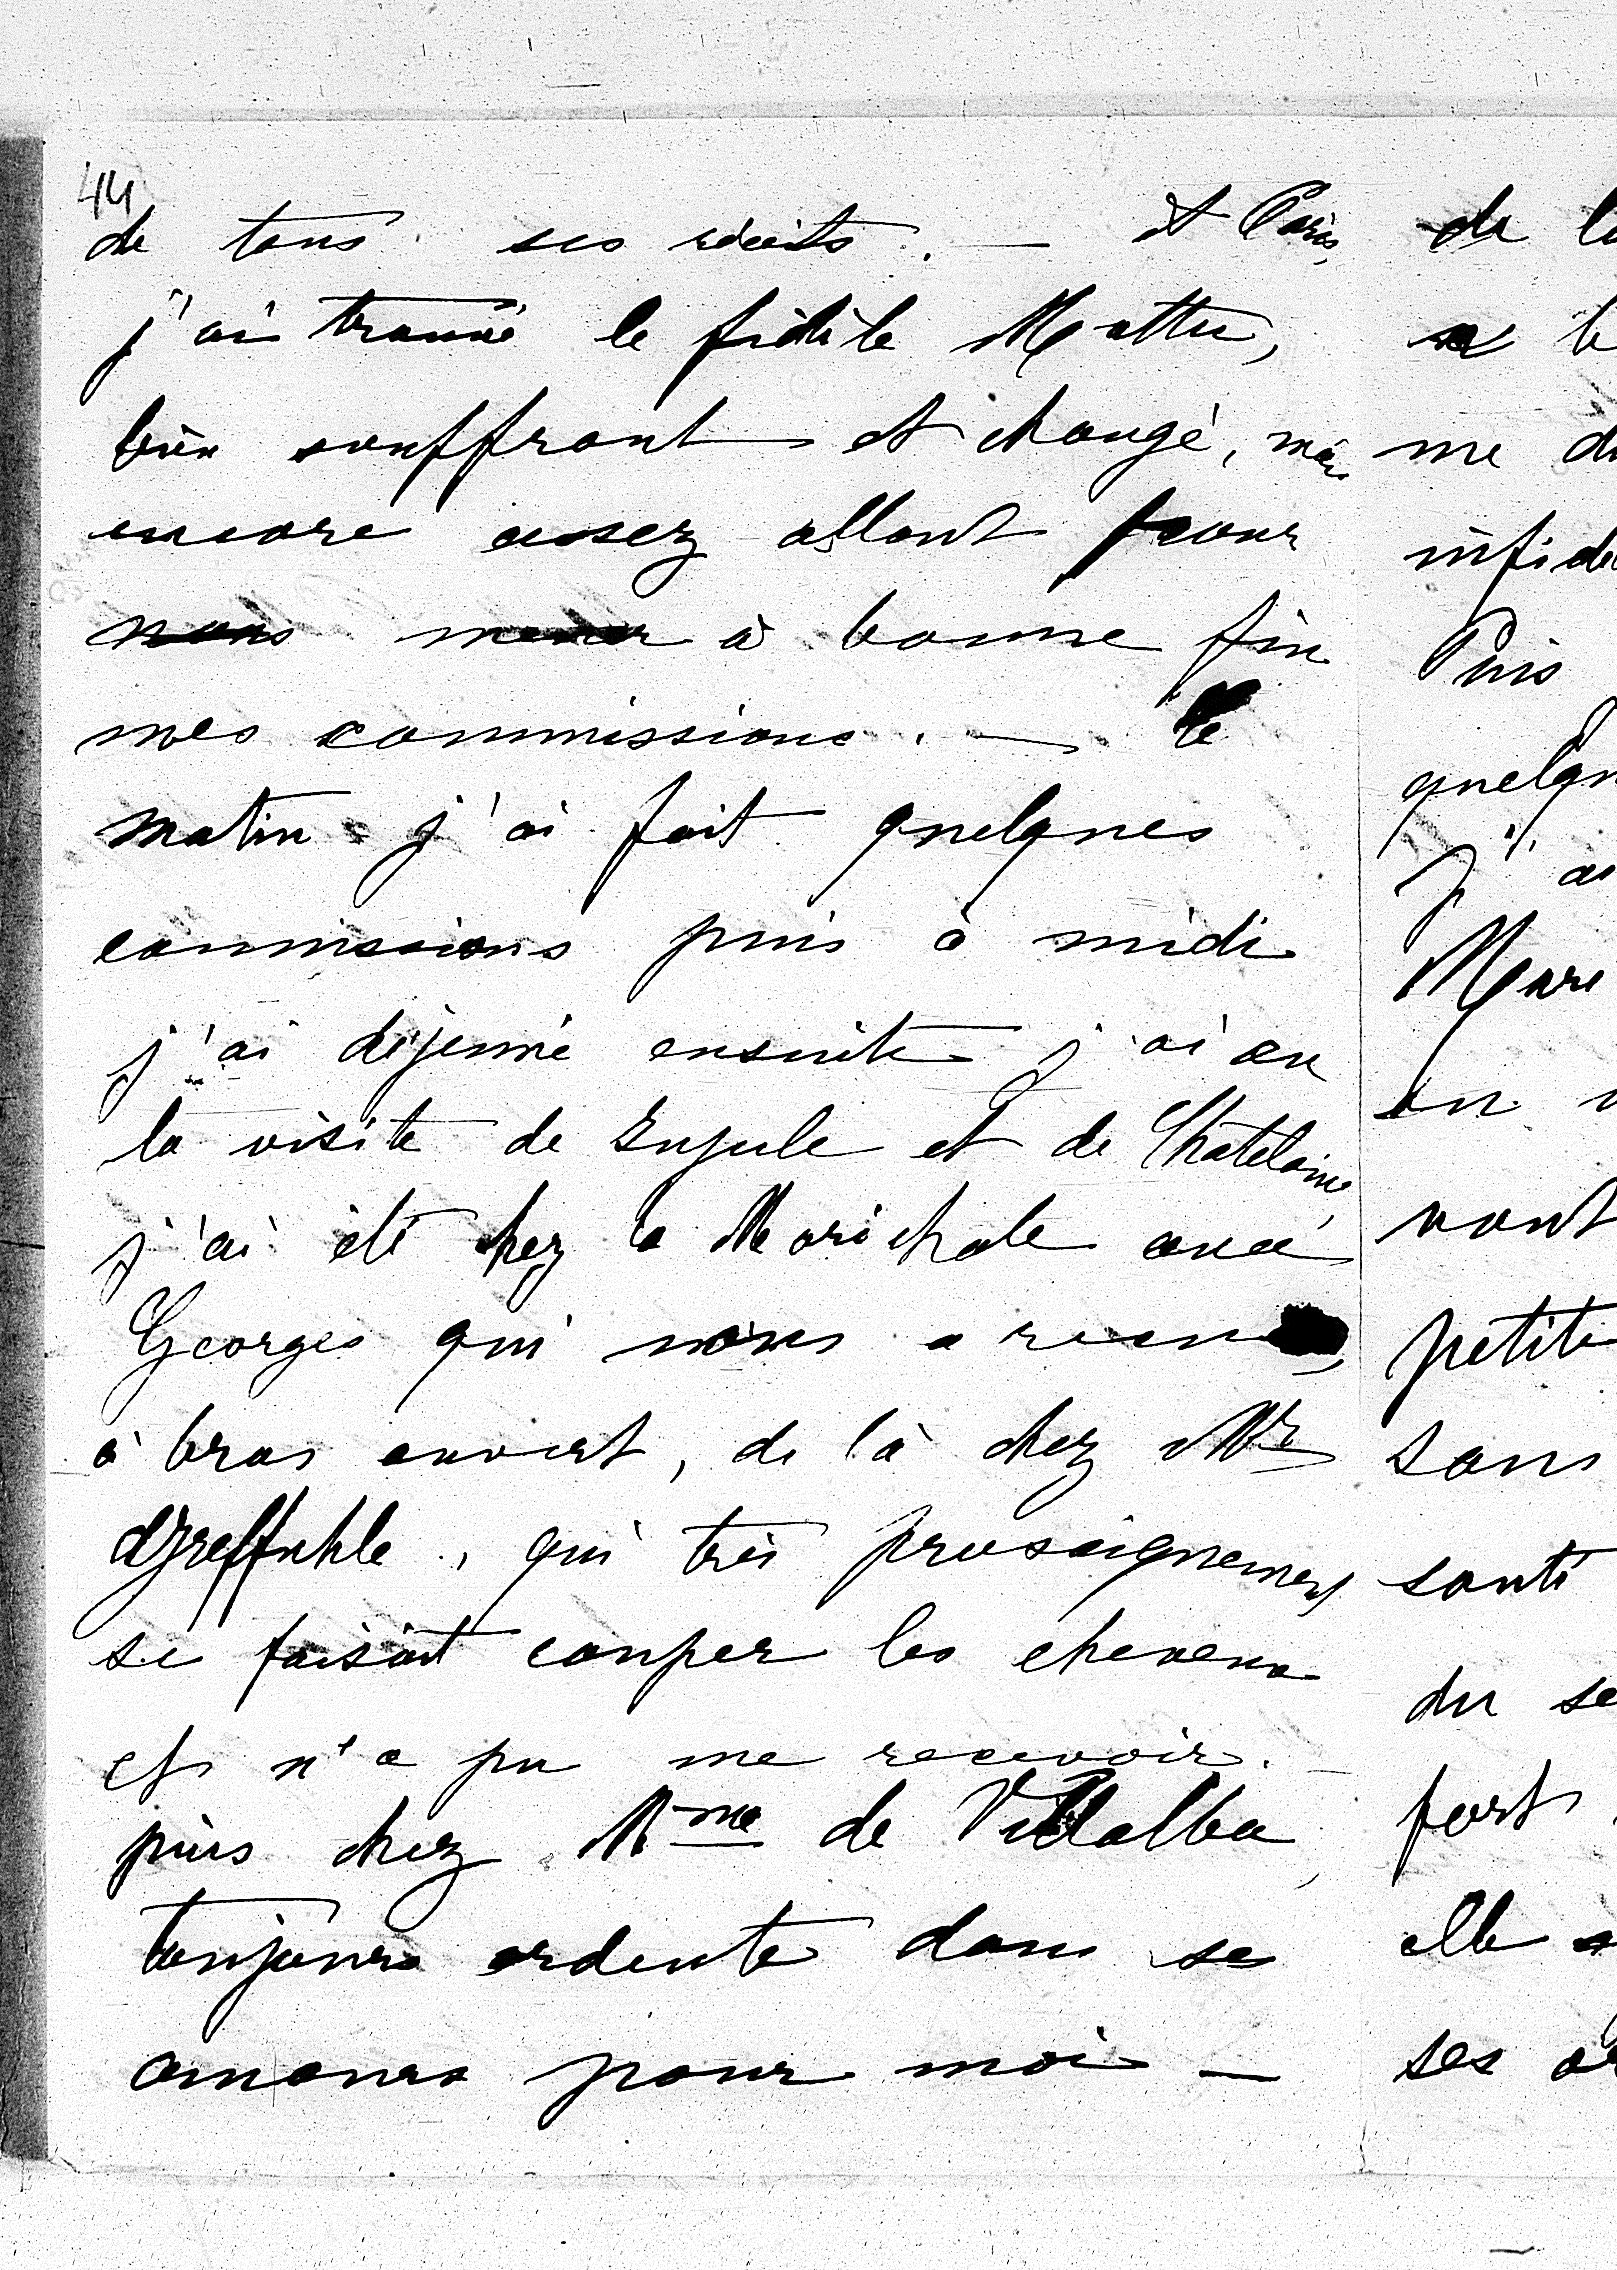 44
de tous ses récits. — A Paris,
j'ai trouvé le fidèle Mattu,
bien souffrant et changé, mais
encore assez allant pour
nous mener à bonne fin
mes commissions. — le
matin j'ai fait quelques
commissions puis à midi
j'ai déjeuné ensuite j'ai eu
la visite de et de Chatelaine,
j'ai été chez la Maréchale avec
Georges qui nous a recu
à bras ouvert, de là chez Mr
Greffuhle, qui très
se faisait couper les cheveux
et n'a pu me recevoir. —
puis chez Mme de Villalba,
toujours ardente dans ses
amours pour moi —
de
me
Puis
J'ai
vont
petite
sans
santé
du
fort
elle
ses